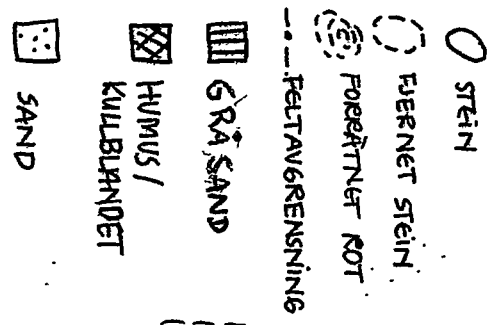 STEIN
FJERNET STEIN
FORRÅTNET ROT
FELTAVGRENSNING
GRÅ SAND
HUMUS/
KULLBLANDET
SAND